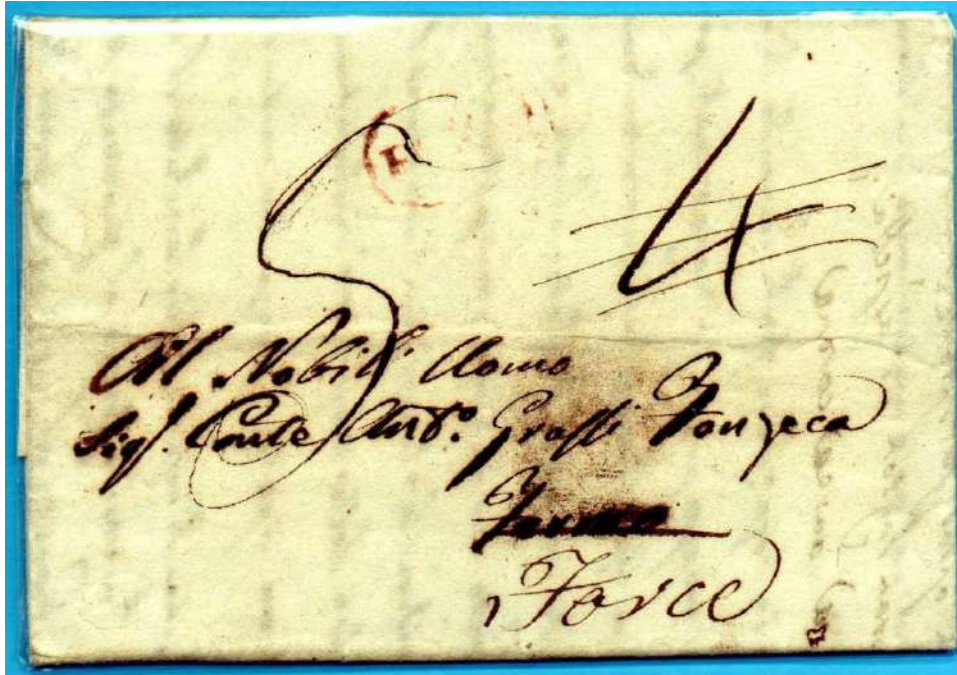 5 4
Al Nobil Uomo
Sig.r Conte Ant.o Grassi Fonzeca
Fermo
Force